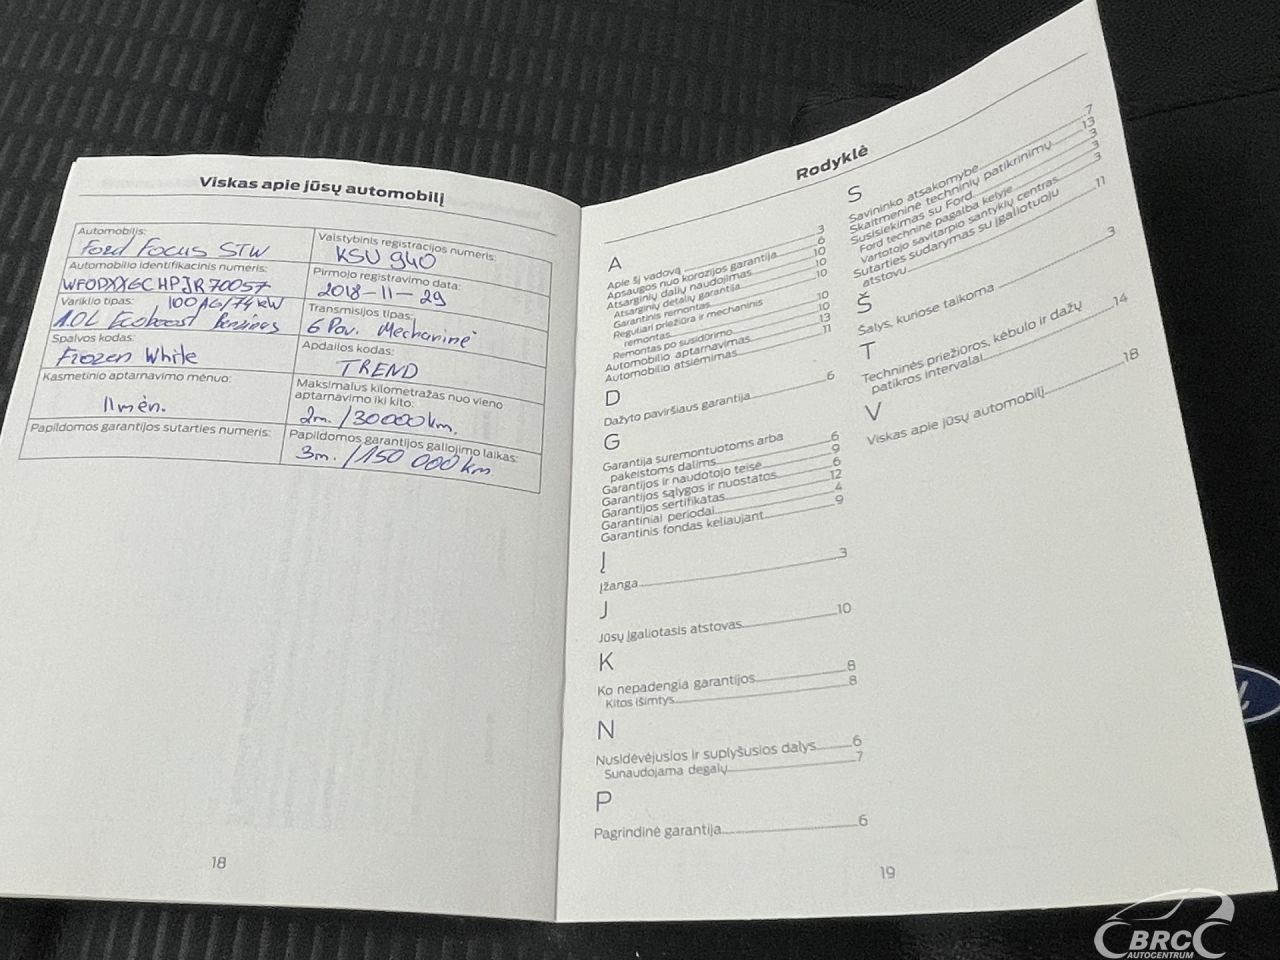 Viskas apie jūsų automobilį
Automobilis:
Ford Focus STW
Valstybinis registracijos numeris:
KSU 940
Automobilio identifikacinis numeris:
WF0DXXGCHPJR70057
Pirmojo registravimo data:
2018-11-29
Variklio tipas: 100AG/74kW
1.0L Ecoboost Benzinas
Transmisijos tipas:
6 Pav. Mechaninė
Spalvos kodas:
Frozen White
Apdailos kodas:
TREND
Kasmetinio aptarnavimo mėnuo:
11mėn.
Maksimalus kilometražas nuo vieno
aptarnavimo iki kito:
2m. /30000km.
Papildomos garantijos sutarties numeris:
Papildomos garantijos galiojimo laikas:
3m. /150 000km
18
Rodyklė
A
Apie šį vadovą 3
Apsaugos nuo korozijos garantija 6
Atsarginių dalių naudojimas 10
Atsarginių detalių garantija 10
Garantinis remontas 10
Reguliari priežiūra ir mechaninis
remontas 10
Remontas po susidūrimo 10
Automobilio aptarnavimas 13
Automobilio atsiėmimas 11
D
Dažyto paviršiaus garantija 6
G
Garantija suremontuotoms arba
pakeistoms dalims 6
Garantijos ir naudotojo teisė 9
Garantijos sąlygos ir nuostatos 6
Garantijos sertifikatas 12
Garantiniai periodai 4
Garantinis fondas keliaujant 9
Į
Įžanga 3
J
Jūsų įgaliotasis atstovas 10
K
Ko nepadengia garantijos 8
Kitos išimtys 8
N
Nusidėvėjusios ir suplyšusios dalys 6
Sunaudojama degalų 7
P
Pagrindinė garantija 6
S
Savininko atsakomybė 7
Skaitmeninė techninių patikrinimų 13
Susisiekimas su Ford 3
Ford techninė pagalba kelyje 3
Vartotojo savitarpio santykių centras 3
Sutarties sudarymas su įgaliotuoju
atstovu 11
Š
Šalys, kuriose taikoma 3
T
Techninės priežiūros, kėbulo ir dažų
patikros intervalai 14
V
Viskas apie jūsų automobilį 18
19
BRC
AUTOCENTRUM